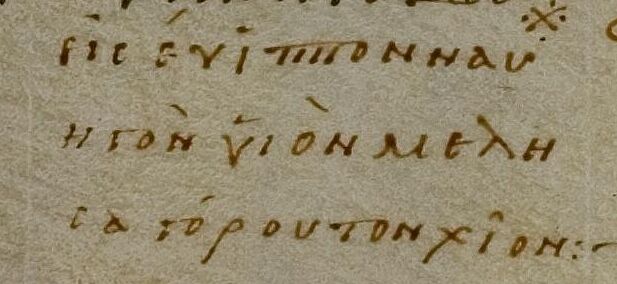 εἰς ἔυϊππον ναυ
ηγὸν ὑιὸν μελη
σαγόρου τον χῖον:~